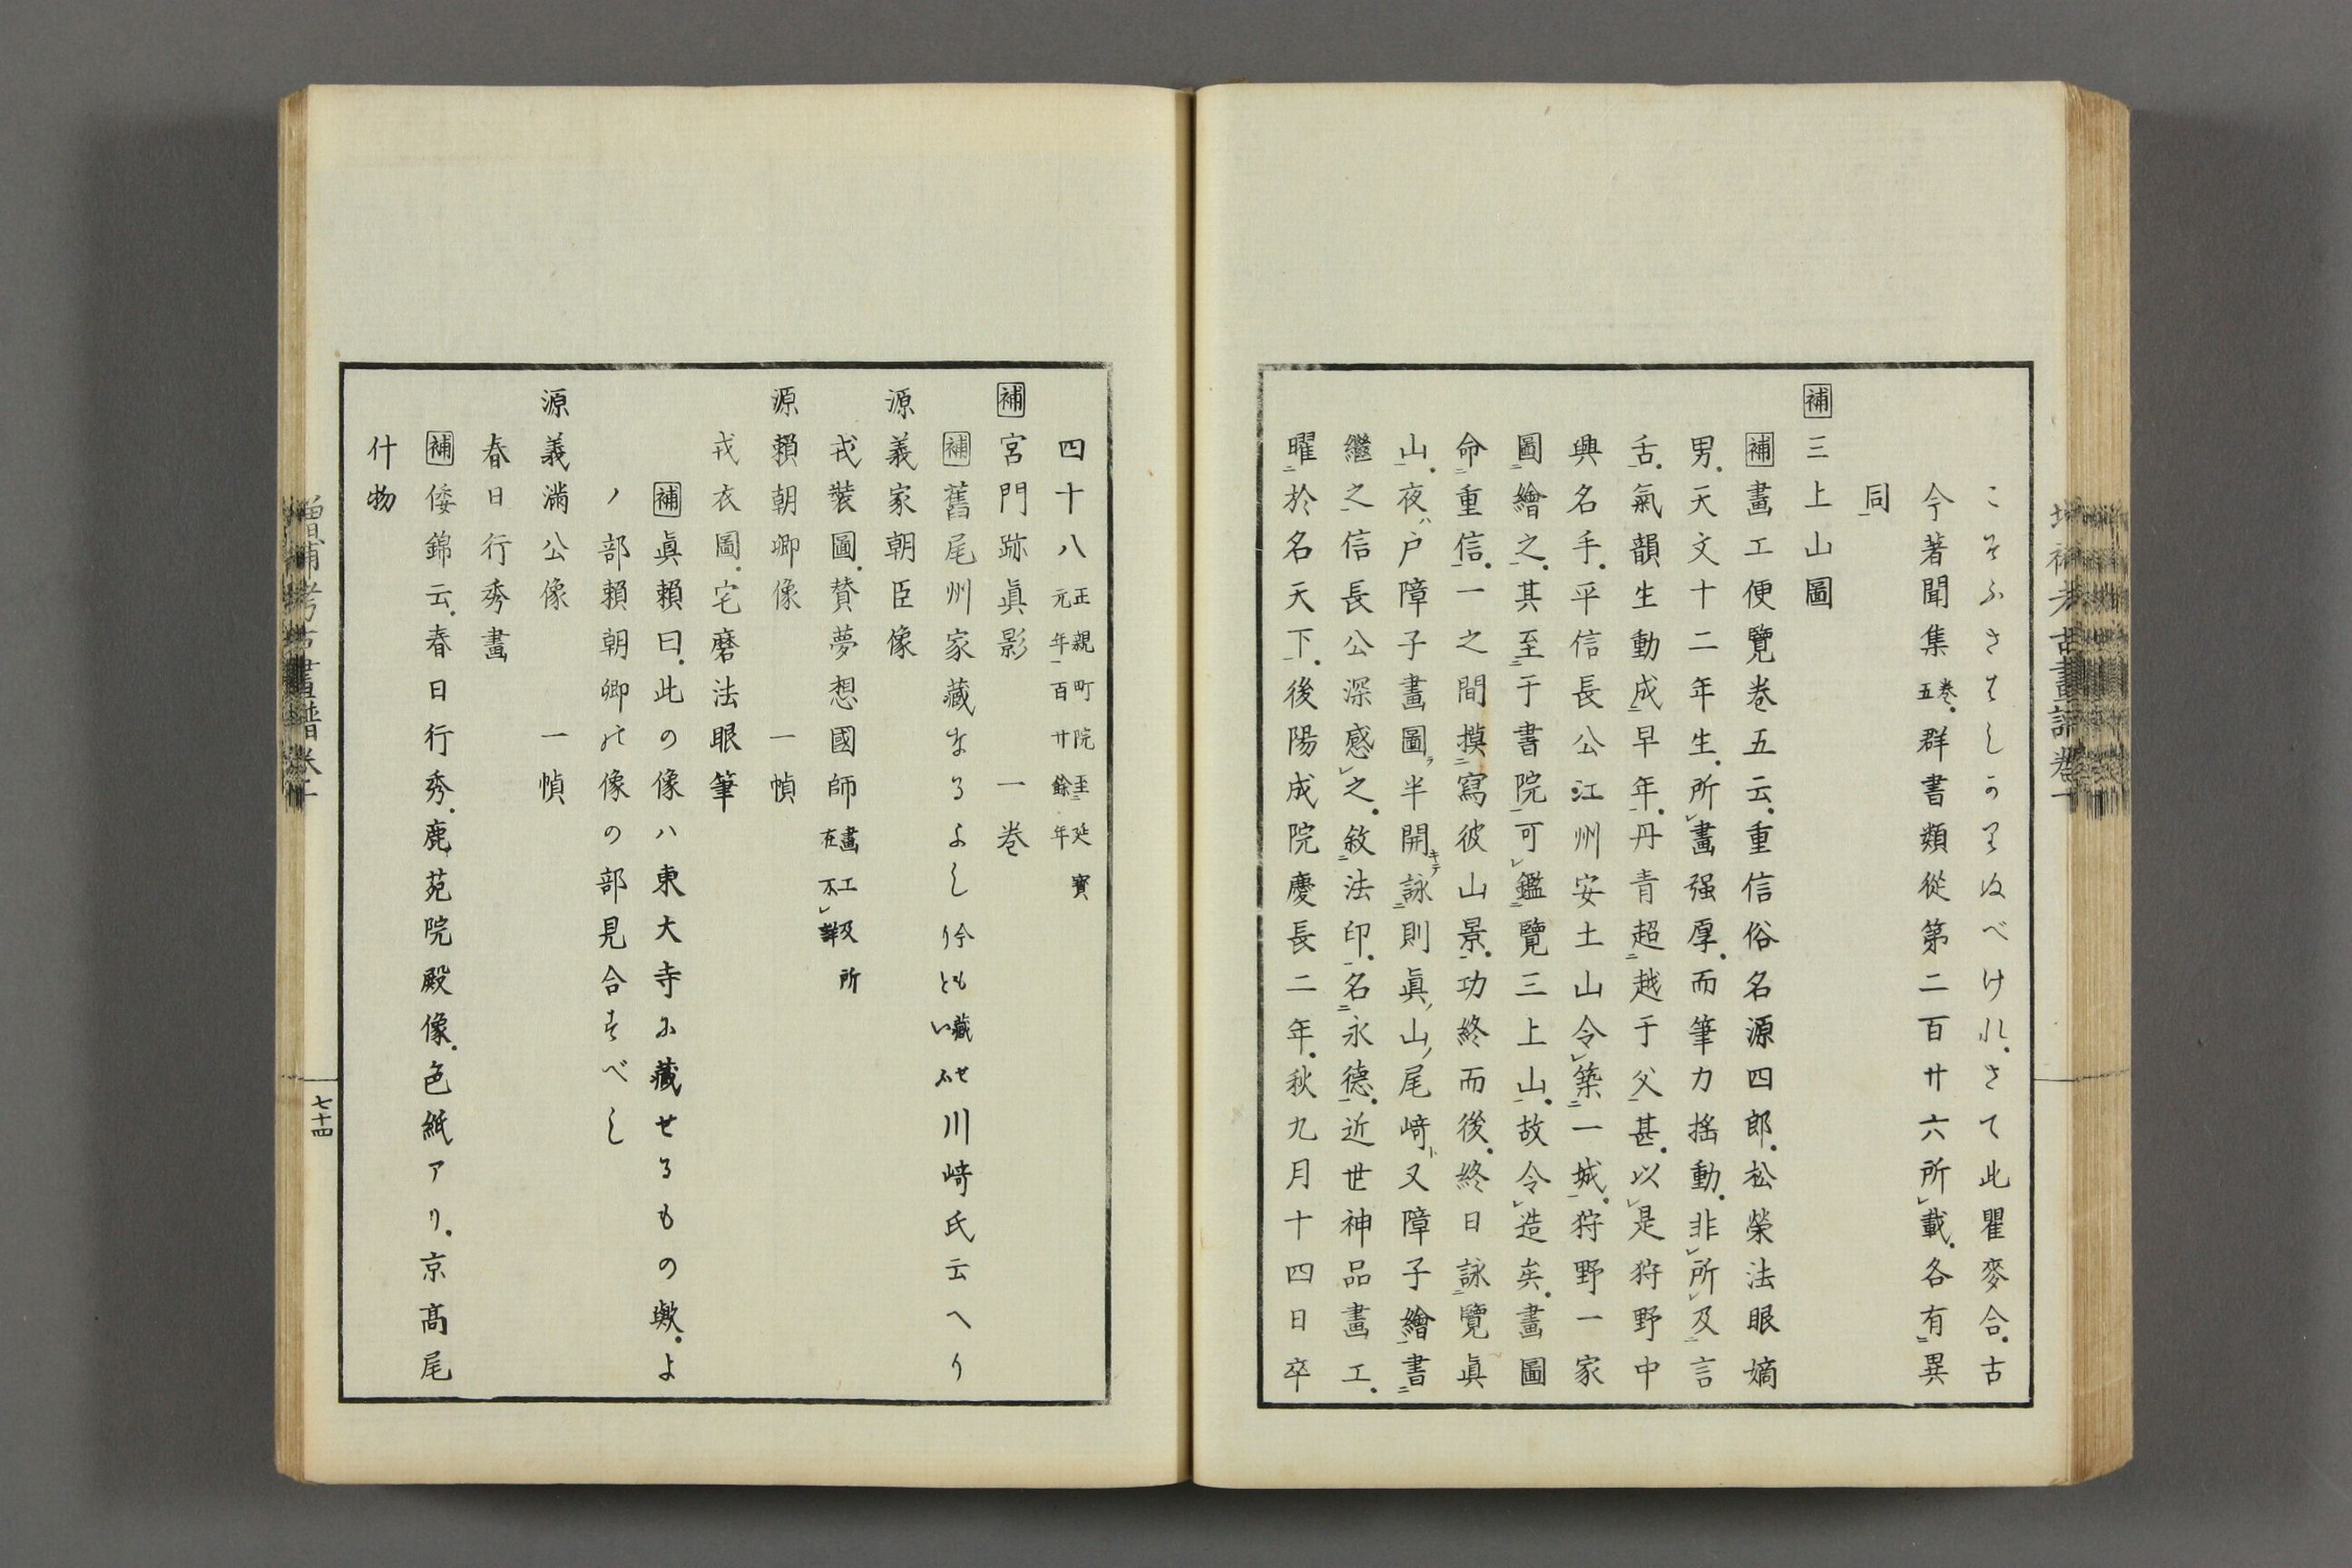 こそふさはしかりぬべけれ。さて此瞿麥合。古
今著聞集卷五。群書類從第二百廿六所レ載。各有二異
同一
補 三上山圖
補 畫工便覽卷五云。重信俗名源四郎。松榮法眼嫡
男。天文十二年生。所レ畫强厚。而筆力搖動。非レ所レ及二言
舌一。氣韻生動成二早年一。丹青超二越于父一甚。以レ是狩野中
興名手。平信長公江州安土山令レ築二一城一。狩野一家
圖二繪之一。其至二于書院一可レ鑑二覽三上山一。故令レ造矣。畫圖
命二重信一。一之間摸二寫彼山景一。功終而後。終日詠二覽眞
山一。夜ハ戸障子畫圖ヲ半開キテ詠二則眞ノ山ノ尾﨑ト又障子繪一書二
繼之一信長公深感レ之。敘二法印一。名二永德一。近世神品畫工。
曜二於名天下一。後陽成院慶長二年。秋九月十四日卒
四十八正親町院至二延寳元年一百廿餘年
補 宮門跡眞影 一卷
補 舊尾州家藏なるよし今も藏せりともいふ川﨑氏云へり
源義家朝臣像
戎裝圖。賛夢想國師畫工及所在不レ詳
源賴朝卿像 一幀
戎衣圖。宅磨法眼筆
補 眞賴曰。此の像ハ東大寺に藏せるもの歟。よ
ノ部賴朝卿の像の部見合すべし
源義滿公像 一幀
春日行秀畫
補 倭錦云。春日行秀。鹿苑院殿像。色紙アリ。京髙尾
什物
七十四